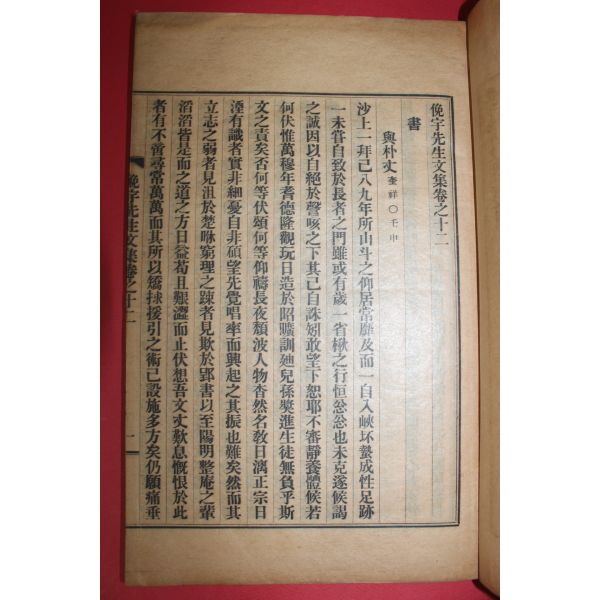 俛宇先生文集卷之十二
書
與朴丈 奎祥○壬申
沙上一拜已八九年所山斗之仰居常靡及而一自入峽坏蟄成性足跡
一未甞自致於長者之門雖或有歲一省楸之行恒忩忩也未克遂候謁
之誠因以自絕於謦咳之下其已自誅矧敢望下恕耶不審靜養體候若
何伏惟萬穆年耆德隆觀玩日造於昭曠訓廸兒孫奬進生徒無負乎斯
文之責矣否何等伏頌何等仰禱長夜頹波人物杳然名敎日漓正宗日
湮有識者實非細憂自非碩望先覺唱率而興起之其振也難矣然而其
立志之弱者見沮於楚咻窮理之踈者見欺於郢書以至陽明整庵之輩
滔滔皆是而之道之方日益荀且艱澀而止伏想吾文丈歎息慨恨於此
者有不啻尋常萬萬而其所以矯捄援引之術已設施多方矣仍願痛垂
俛宇先生文集卷之十二
一